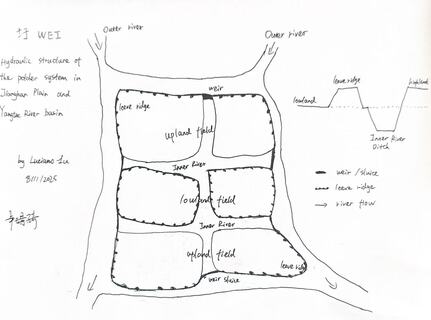 圩 WEI
Hydraulic structure of
the polder system in
Jianghan Plain and
Yangtze River basin
by Luciano
8/11/2025
Outer river
Outer river
weir
leave ridge
upland field
Inner River
lowland field
Inner River
upland field
leave rid
weir sluice
leave ridge
highland
lowland
Inner River
Ditch
weir/sluice
leave ridge
river flow